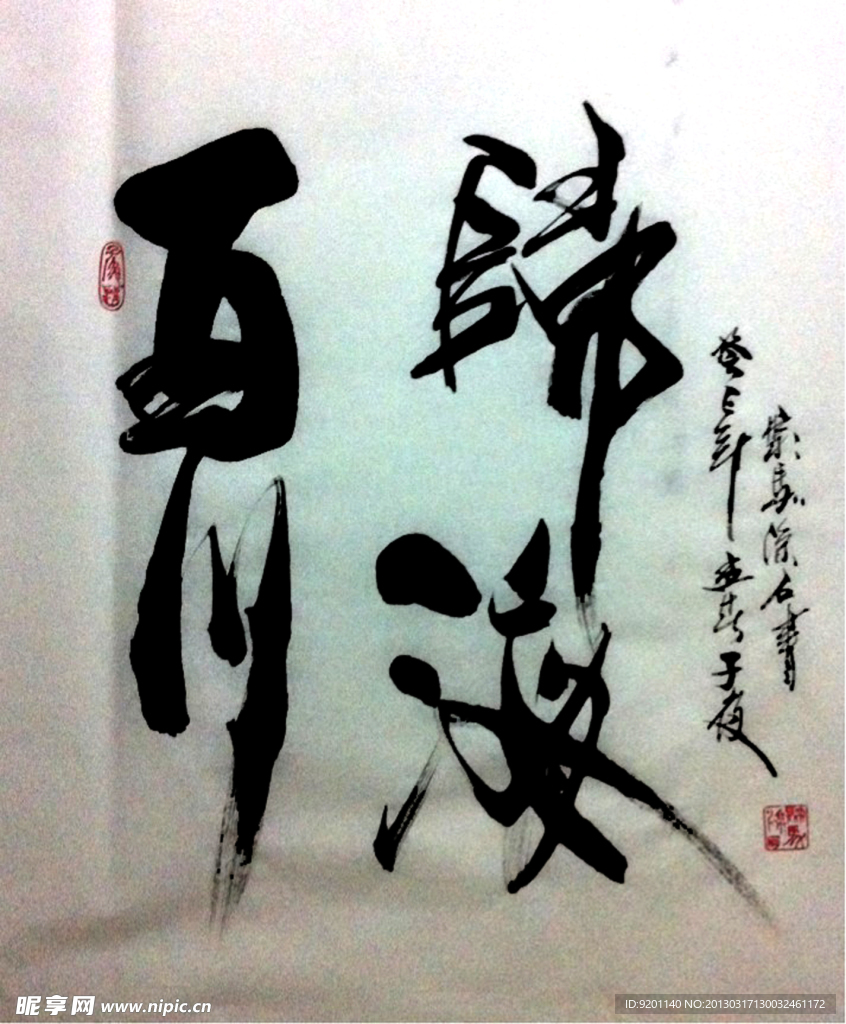 百川
歸海
癸巳年孟春子夜
石書
昵享网 www.nipic.cn
ID:9201140 NO:20130317130032461172